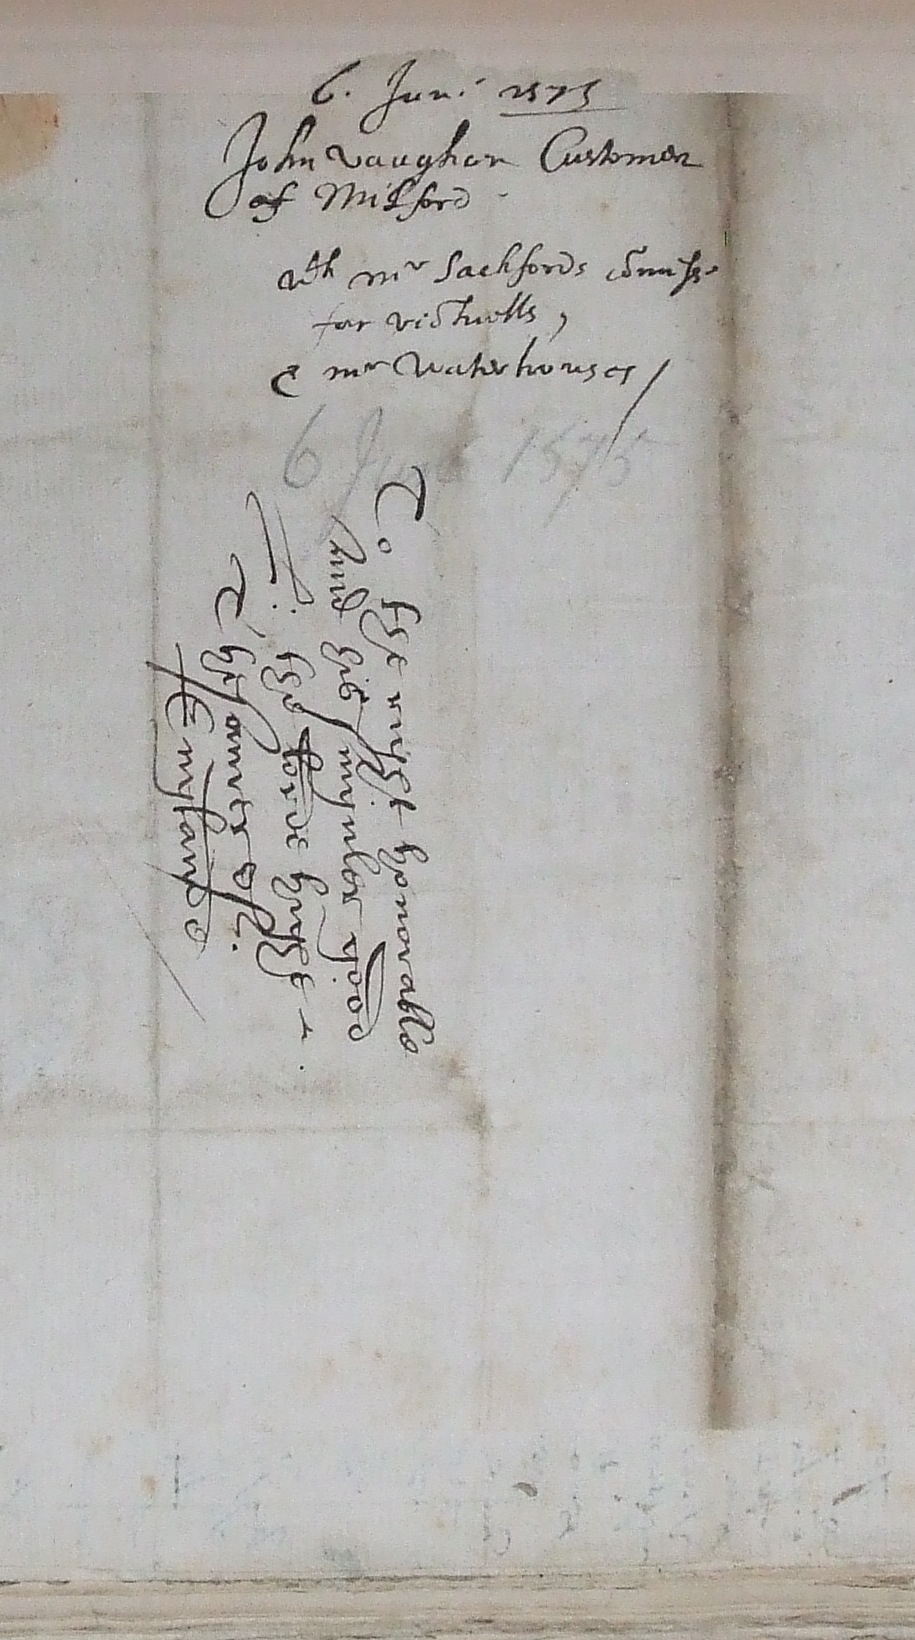 6. Juni 1575
John Vaughan Customer
of Milford
wth mr Sackfords comiss
for victuells,
& mr Waterhouses /
6 June 1575
To the right honorable
and his singuler good
L. the lorde highe
Thesaurer of
Englande